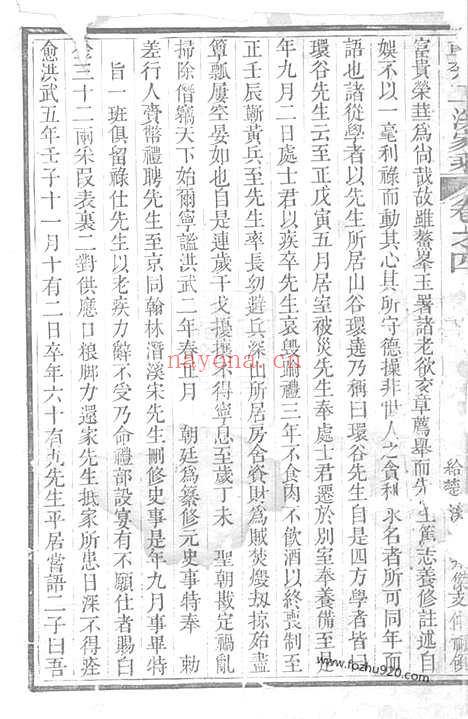 富貴榮華爲尚哉故雖鰲峯王署諸老欲交章薦舉而先生篤志養修註述自
娛不以一毫利祿而動其心其所守德操非世人之貪利求名者所可同年而
語也諸從學者以先生所居山谷環遶乃稱曰環谷先生自是四方學者皆曰
環谷先生云至正戊寅五月居室被災先生奉處士君遷於別室奉養備至是
年九月二日處士君以疾卒先生哀毀踰禮三年不食肉不飲酒以終喪制至
正壬辰蘄黃兵至先生率長幼避兵深山所居房舍資財爲賊焚燬刼掠殆盡
簞瓢屢空晏如也自是連歲干戈擾攘得寧息至歲丁未 聖朝戡定禍亂
掃除僭竊天下始爾寧謐洪武二年春正月 朝廷爲纂修元史事特奉 勅
差行人賫幣禮聘先生至京同翰林潛溪宋先生刪修史事是年九月事畢特
旨一班俱留祿仕先生以老疾力辭不受乃命禮部設宴有不願仕者賜白
金三十二兩釆段表裏二對供應口粮脚力還家先生抵家所患日深不得痊
愈洪武五年壬子十一月十有二日卒年六十有九先生平居嘗語二子曰吾
卷之四
www.fozhu920.com
nayona.cn